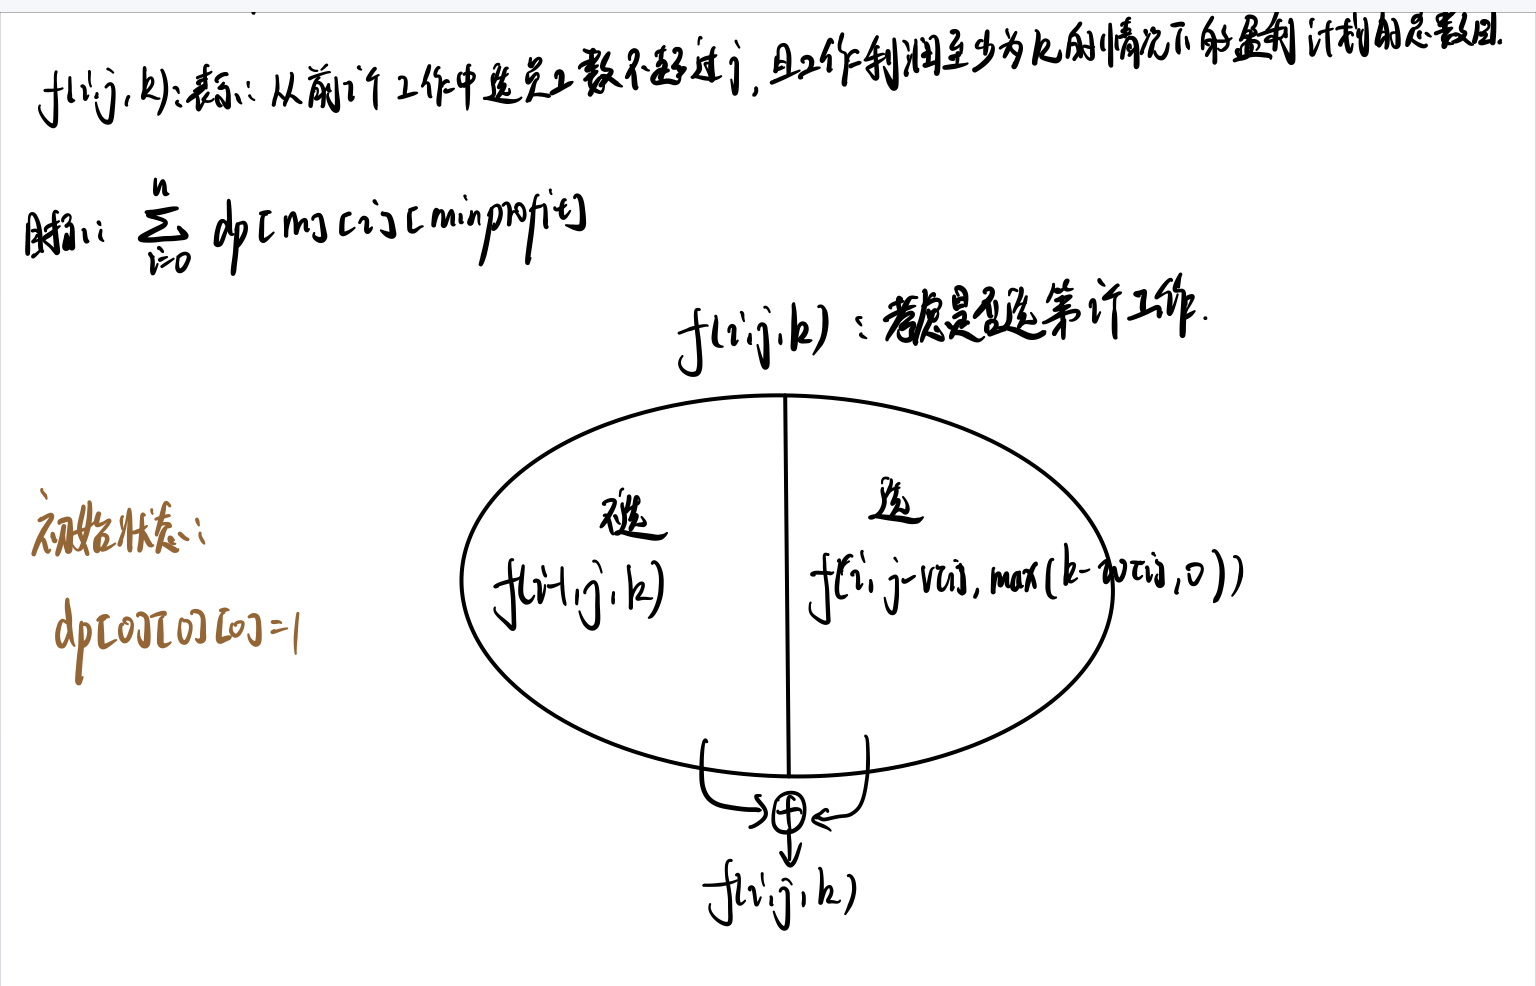 f(i,j,k):表示:从前i个工作中选员工数不超过j,且工作利润至少为k的情况下的盈利计划的总数目.
目标: n∑i=0 dp[m][i][minprofit]
f(i,j,k):考虑是否选第i个工作.
不选 选
f(i-1,j,k) f(i,j-v[i],max(k-w[i],0))
初始状态:
dp[0][0][0]=1
+
f(i,j,k)